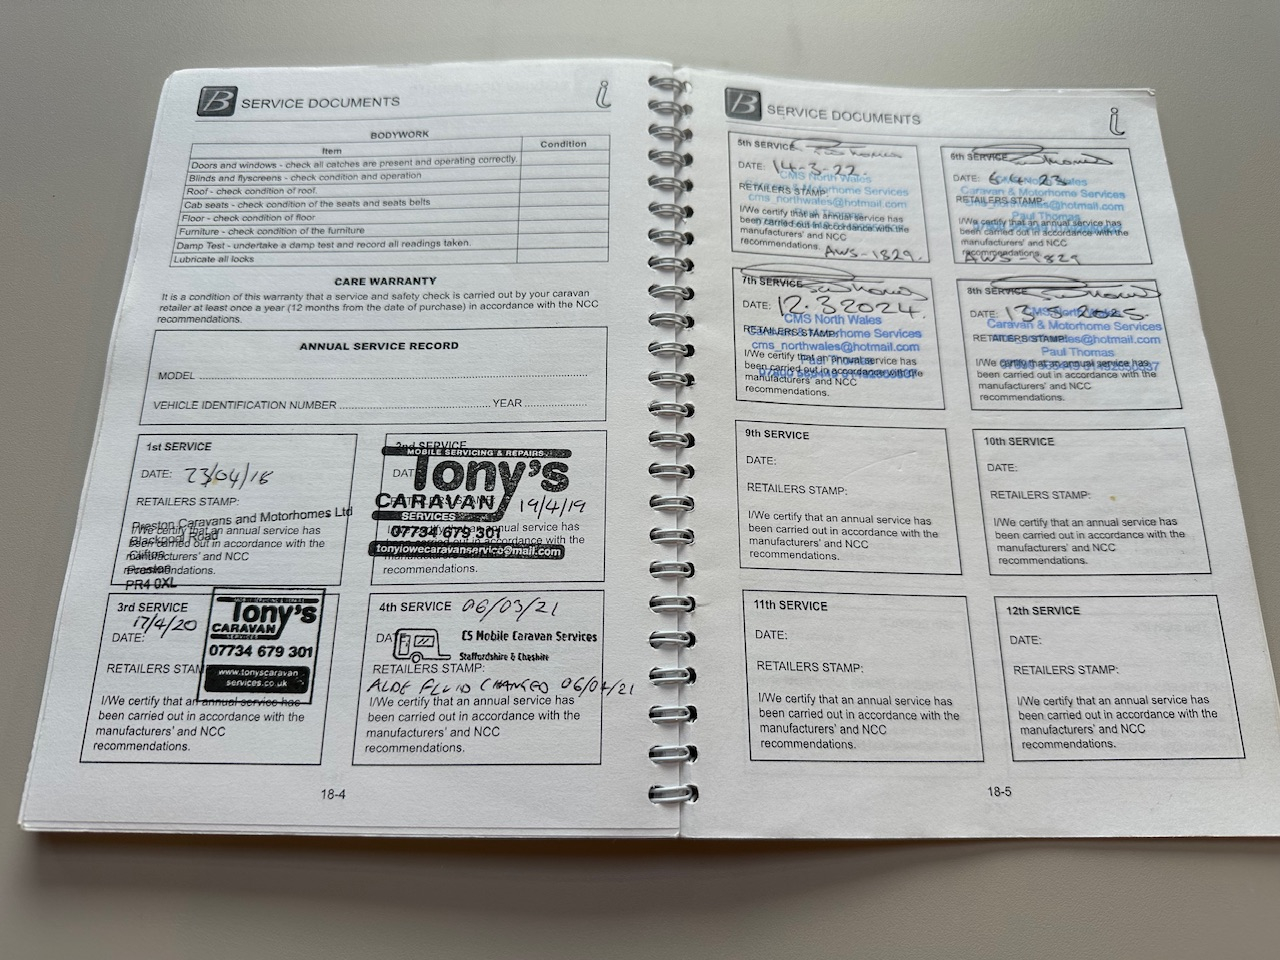 B SERVICE DOCUMENTS i
BODYWORK
Item Condition
Doors and windows - check all catches are present and operating correctly.
Blinds and flyscreens - check condition and operation
Roof - check condition of roof.
Cab seats - check condition of the seats and seats belts
Floor - check condition of floor
Furniture - check condition of the furniture
Damp Test - undertake a damp test and record all readings taken.
Lubricate all locks
CARE WARRANTY
It is a condition of this warranty that a service and safety check is carried out by your caravan
retailer at least once a year (12 months from the date of purchase) in accordance with the NCC
recommendations.
ANNUAL SERVICE RECORD
MODEL
VEHICLE IDENTIFICATION NUMBER YEAR
1st SERVICE
DATE: 23/04/18
RETAILERS STAMP:
Preston Caravans and Motorhomes Ltd
Blackpool Road
Clifton
Preston
PR4 0XL
I/We certify that an annual service has
been carried out in accordance with the
manufacturers' and NCC
recommendations.
2nd SERVICE
MOBILE SERVICING & REPAIRS
Tony's
CARAVAN
SERVICES
19/4/19
07734 679 301
tonylowecaravanservice@mail.com
recommendations.
3rd SERVICE
17/4/20
DATE:
RETAILERS STAMP
Tony's
CARAVAN
SERVICES
07734 679 301
www.tonyscaravan
services.co.uk
I/We certify that an annual service has
been carried out in accordance with the
manufacturers' and NCC
recommendations.
4th SERVICE 06/03/21
DATE
CS Mobile Caravan Services
Staffordshire & Cheshire
RETAILERS STAMP:
ALDE FLUID CHANGED
I/We certify that an annual service has
been carried out in accordance with the
manufacturers' and NCC
recommendations.
18-4
B SERVICE DOCUMENTS i
5th SERVICE
DATE: 14-3-22
CMS North Wales
Caravan & Motorhome Services
RETAILERS STAMP:
cms_northwales@hotmail.com
I/We certify that an annual service has
been carried out in accordance with the
manufacturers' and NCC
recommendations. AWS-1829.
6th SERVICE
DATE: 6-4-23
CMS North Wales
Caravan & Motorhome Services
RETAILERS STAMP:
cms_northwales@hotmail.com
Paul Thomas
I/We certify that an annual service has
been carried out in accordance with the
manufacturers' and NCC
recommendations.
AWS-1829
7th SERVICE
DATE: 12.3.2024.
CMS North Wales
Caravan & Motorhome Services
RETAILERS STAMP:
cms_northwales@hotmail.com
Paul Thomas
I/We certify that an annual service has
been carried out in accordance with the
manufacturers' and NCC
recommendations.
8th SERVICE
DATE: 13-3-2025.
CMS North Wales
Caravan & Motorhome Services
RETAILERS STAMP:
cms_northwales@hotmail.com
Paul Thomas
I/We certify that an annual service has
been carried out in accordance with the
manufacturers' and NCC
recommendations.
9th SERVICE
DATE:
RETAILERS STAMP:
I/We certify that an annual service has
been carried out in accordance with the
manufacturers' and NCC
recommendations.
10th SERVICE
DATE:
RETAILERS STAMP:
I/We certify that an annual service has
been carried out in accordance with the
manufacturers' and NCC
recommendations.
11th SERVICE
DATE:
RETAILERS STAMP:
I/We certify that an annual service has
been carried out in accordance with the
manufacturers' and NCC
recommendations.
12th SERVICE
DATE:
RETAILERS STAMP:
I/We certify that an annual service has
been carried out in accordance with the
manufacturers' and NCC
recommendations.
18-5